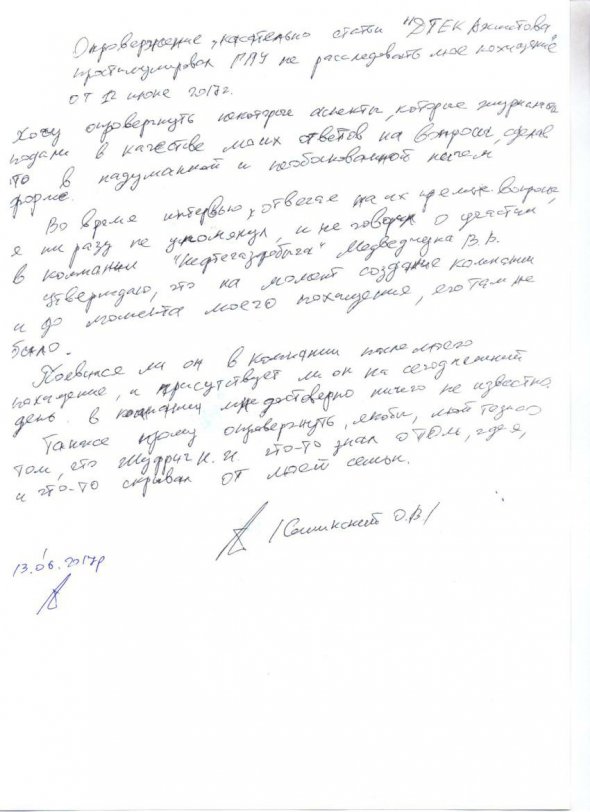 Опровержение, касательно статьи "ДТЕК Ахметова
простимулировал ГПУ не расследовать мое похищение"
от 12 июня 2017г.
Хочу опровергнуть некоторые аспекты, которые журналисты
подали в качестве моих ответов на вопросы, сделав
это в надуманной и необоснованной ничем
форме.
Во время интервью, отвечая на их прямые вопросы,
я ни разу не упомянул, и не говорил о участии,
в компании "Нефтегаздобыча" Медведчука В.В.
Утверждаю, что на момент создание компании
и до момента моего похищение, его там не
было.
Появился ли он в компании после моего
похищение, и присутствует ли он на сегоднешний
день в компании мне достоверно ничего не известно.
Также прошу опровергнуть, якобы, мой тезис о
том, что Шуфрич Н. И. что-то знал о том, где я,
и что-то скрывал от моей семьи.
/Семинский О.В/
13.06.2017р